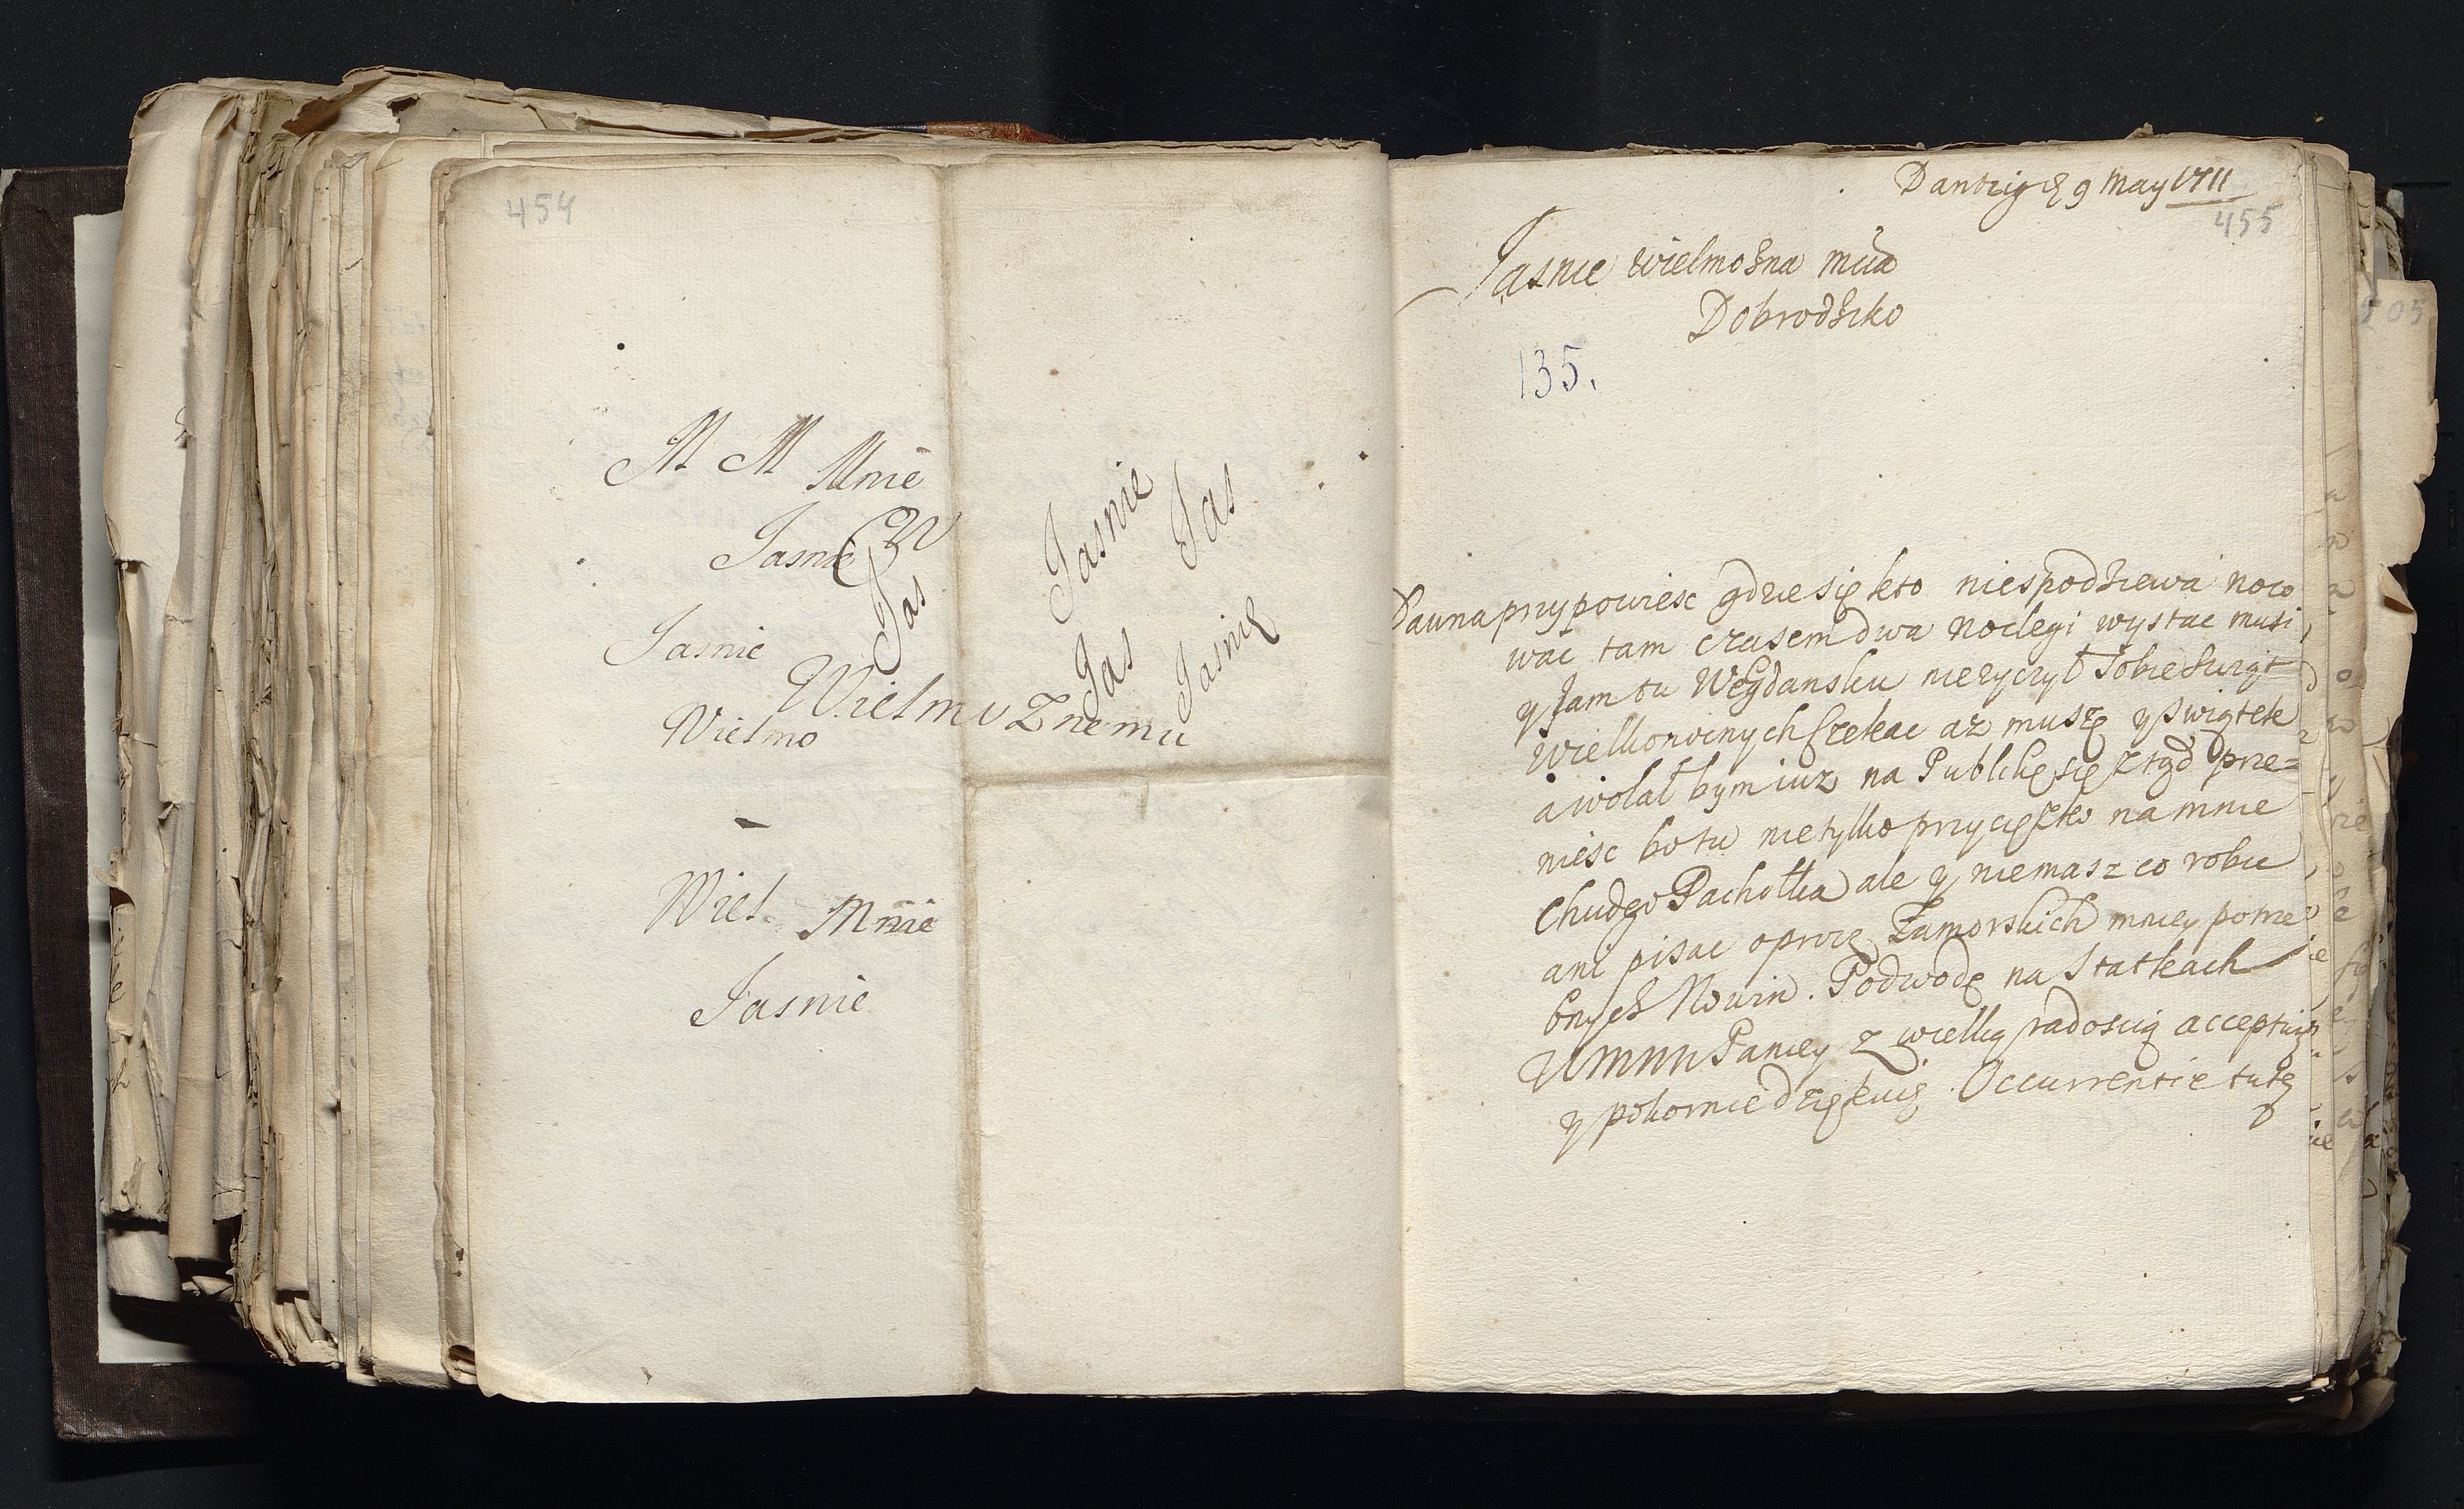 454
M M Mnie
Jasnie
Jas
Jasnie
Wielmoznemu
Wielmo
Wiel Mnie
Jasnie
Jasnie
Jas
Jas
Jasnie
Dantzig d 9 May 1711
455
Jasnie wielmozna mcia
Dobrodziko
135.
Dauna przypowiesc gdzie się kto niespodziewa noco
wac tam czasem dwa noclegi wystac musi
y Jam tu WGdansku nie zyczył Sobie Swiąt
Wielkonocnych Czekac az muszę y Swiątek
a wolał bym iuz na Publikę się ztąd prze=
niesc bo tu nie tylko przycięszko na mnie
Chudego Pachołka ale y niemasz co robic
ani pisac oprocz Zamorskich mniey potrze
bnych Nowin. Podwodę na Statkach
WMMM Paniey z wielką radoscią acceptuię
y pokornie dziękuię. Occurrentie tute